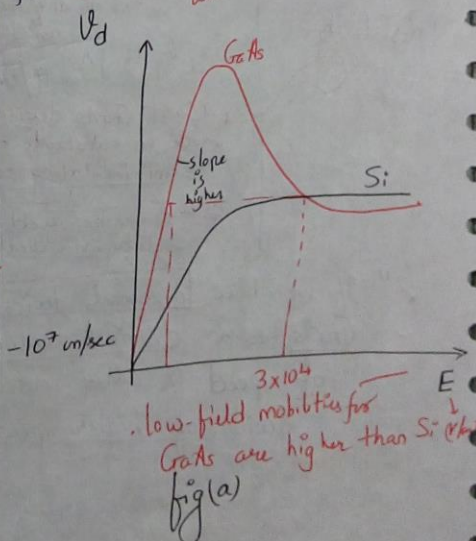 Vd
GaAs
slope
is
higher
Si
-10⁷ cm/sec
3x10⁴
E
. low-field mobilities for
GaAs are higher than Si
fig(a)